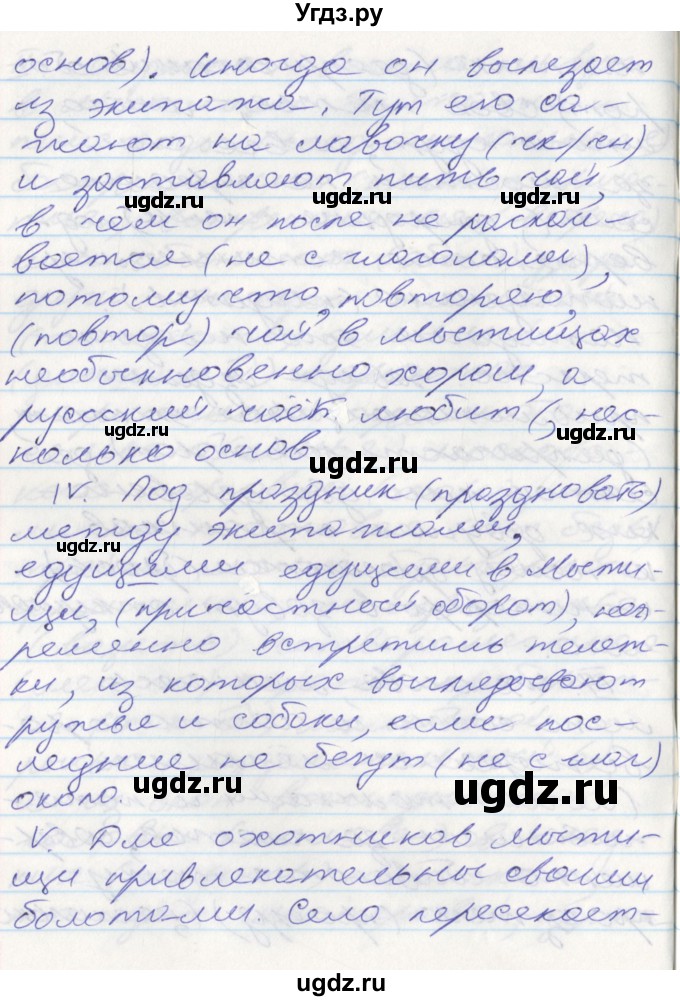 Угдз.ру
основ). Иногда он вылезает
из экипажа. Тут его са-
жают на лавочку (чк/чн)
и заставляют пить чай,
ugdz.ru ugdz.ru
в чём он после не раскаи-
вается (не с глаголами),
потому что, повторяю,
ugdz.ru
(повтор) чай в Мытищах
необыкновенно хорош, а
русский чаёк любит (, нес-
ugdz.ru
колько основ
ugdz.ru
IV. Под праздник (праздновать)
между экипажами,
ugdz.ru
едущими едущими в Мыти-
щи, (причастный оборот), неп-
ременно встретишь тележ-
ки, из которых выглядывают
ружья и собаки, если пос-
ледние не бегут (не с глаг)
ugdz.ru ugdz.ru
около.
V. Для охотников Мыти-
щи привлекательны своими
болотами. Село пересекает-
ugdz.ru